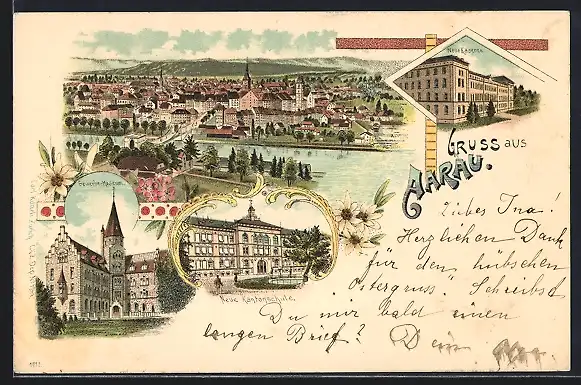 Neue Kaserne
GRUSS aus
AARAU.
Gewerbe-Museum.
Neue Kantonschule.
Liebes Ina!
Herzlichen Dank
für den hübschen
Ostergruss. Schreibst
Du mir bald einen
langen Brief? Dein